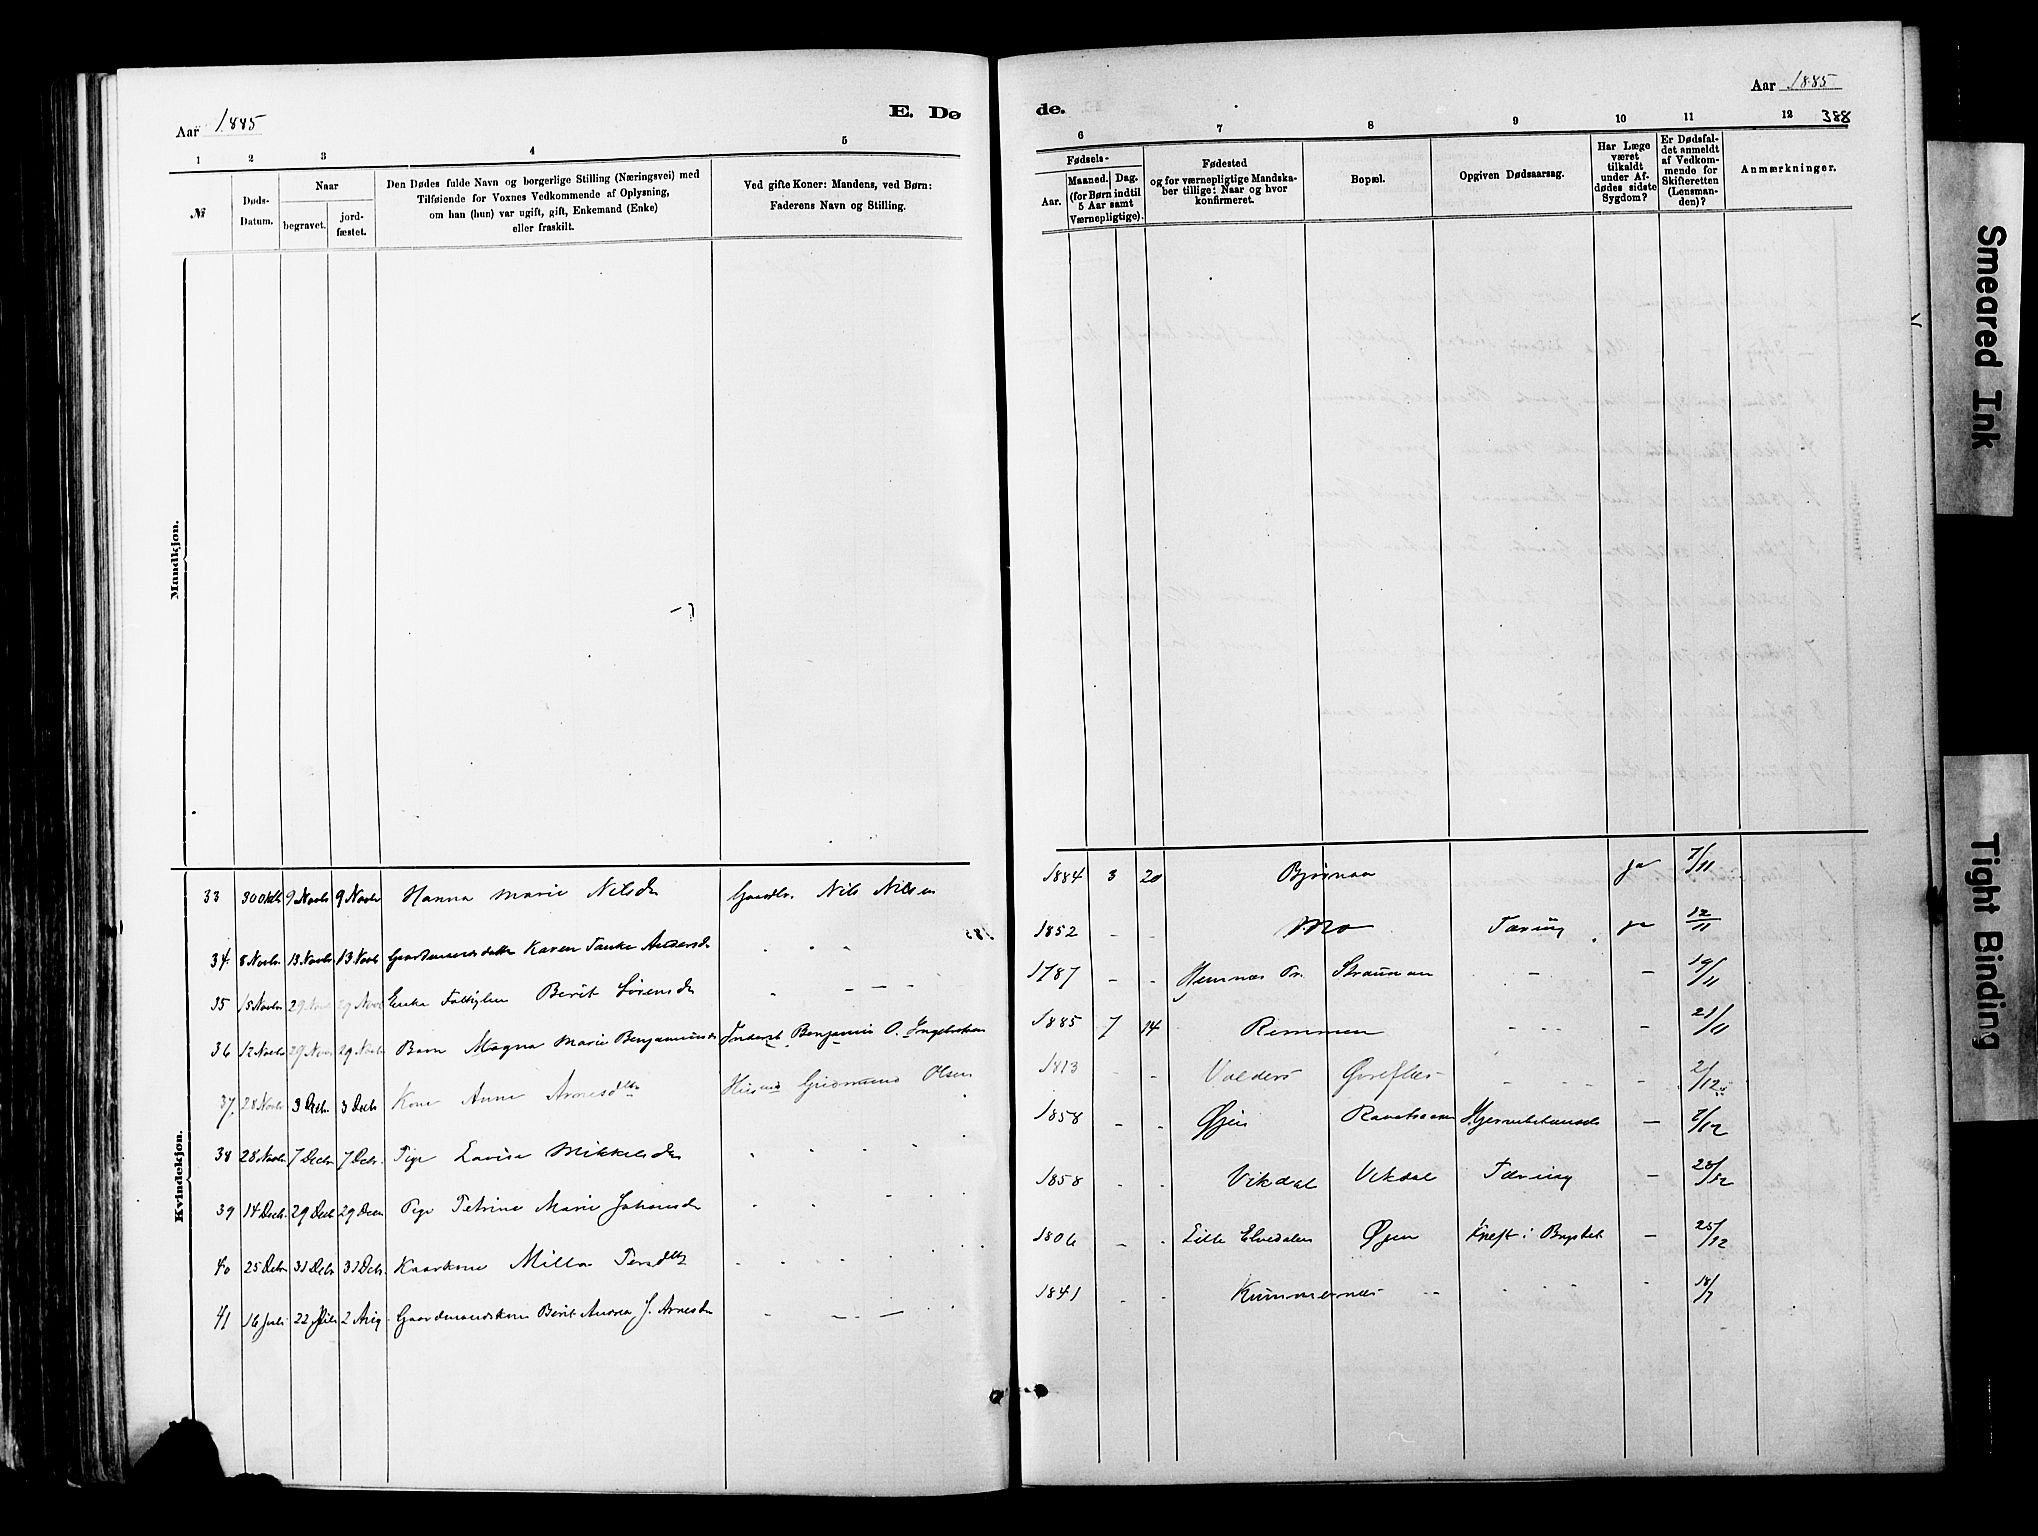 Aar 1885
E. Dø
de.
Aar 1885
388
1 2 3 4 5
6 7 8 9 10 11 12
№
Døds-Datum.
Naar
begravet.
jord-fæstet.
Den Dødes fulde Navn og borgerlige Stilling (Næringsvei) med
Tilføiende for Voxnes Vedkommende af Oplysning,
om han (hun) var ugift, gift, Enkemand (Enke)
eller fraskilt.
Ved gifte Koner: Mandens, ved Børn:
Faderens Navn og Stilling.
Fødsels-
Aar.
Maaned. Dag.
(for Børn indtil
5 Aar samt
Værnepligtige).
Fødested
og for værnepligtige Mandska-
ber tillige: Naar og hvor
konfirmeret.
Bopæl.
Opgiven Dødsaarsag.
Har Læge
været
tilkaldt
under Af-
dødes sidste
Sygdom?
Er Dødsfal-
det anmeldt
af Vedkom-
mende for
Skifteretten
(Lensman-
den)?
Anmærkninger.
Mandkjøn.
Kvindekjøn.
33 30 Okt 9 Novbr 9 Novbr Hanna Marie Nilsdtr Nils Nilsen 1884 3 20 Bjørnaa ja 7/11
34 8 Novbr 13 Novbr 13 Novb Gaardmandsdatter Karen Tanke Andersdtr 1852 - - Mo Tæring ja 12/11
35 15 Novbr 29 Novb 29 Novb Enke Berit Sørensdtr 1787 - - Hemnæs Pr. Straumen - - 19/11
36 12 Novbr 29 Novb 29 Novb Barn Magna Marie Benjaminsdtr Inderst Benjamin O. Ingebrigtsen 1885 7 14 Remmen - - 21/11
37. 28 Novbr 3 Decbr 3 Decbr Kone Anne Arnesdtr Husmd Gudmund Olsen 1813 - - Valders - - 2/12
38 28 Novbr 7 Decbr 7 Decbr Pige Lovise Mikkelsdtr 1858 - - Øjen Hjernebetændelse - 2/12
39 14 Decbr 29 Decbr 29 Decbr Pige Petrine Marie Johansdtr 1858 - - Vikdal Vikdal Tæring - 28/12
40 25 Decbr 31 Decbr 31 Decbr. Kaarkone Milla Persdtr 1806 - - Lille Elvedalen Øjen Kræft i Brystet - 25/12
41 16 Juli 22 Juli 2 Aug Gaardmandskone Berit Andrea J. Arnesdtr 1841 - - Kummernæs - - 18/7
Smeared Ink
Tight Binding